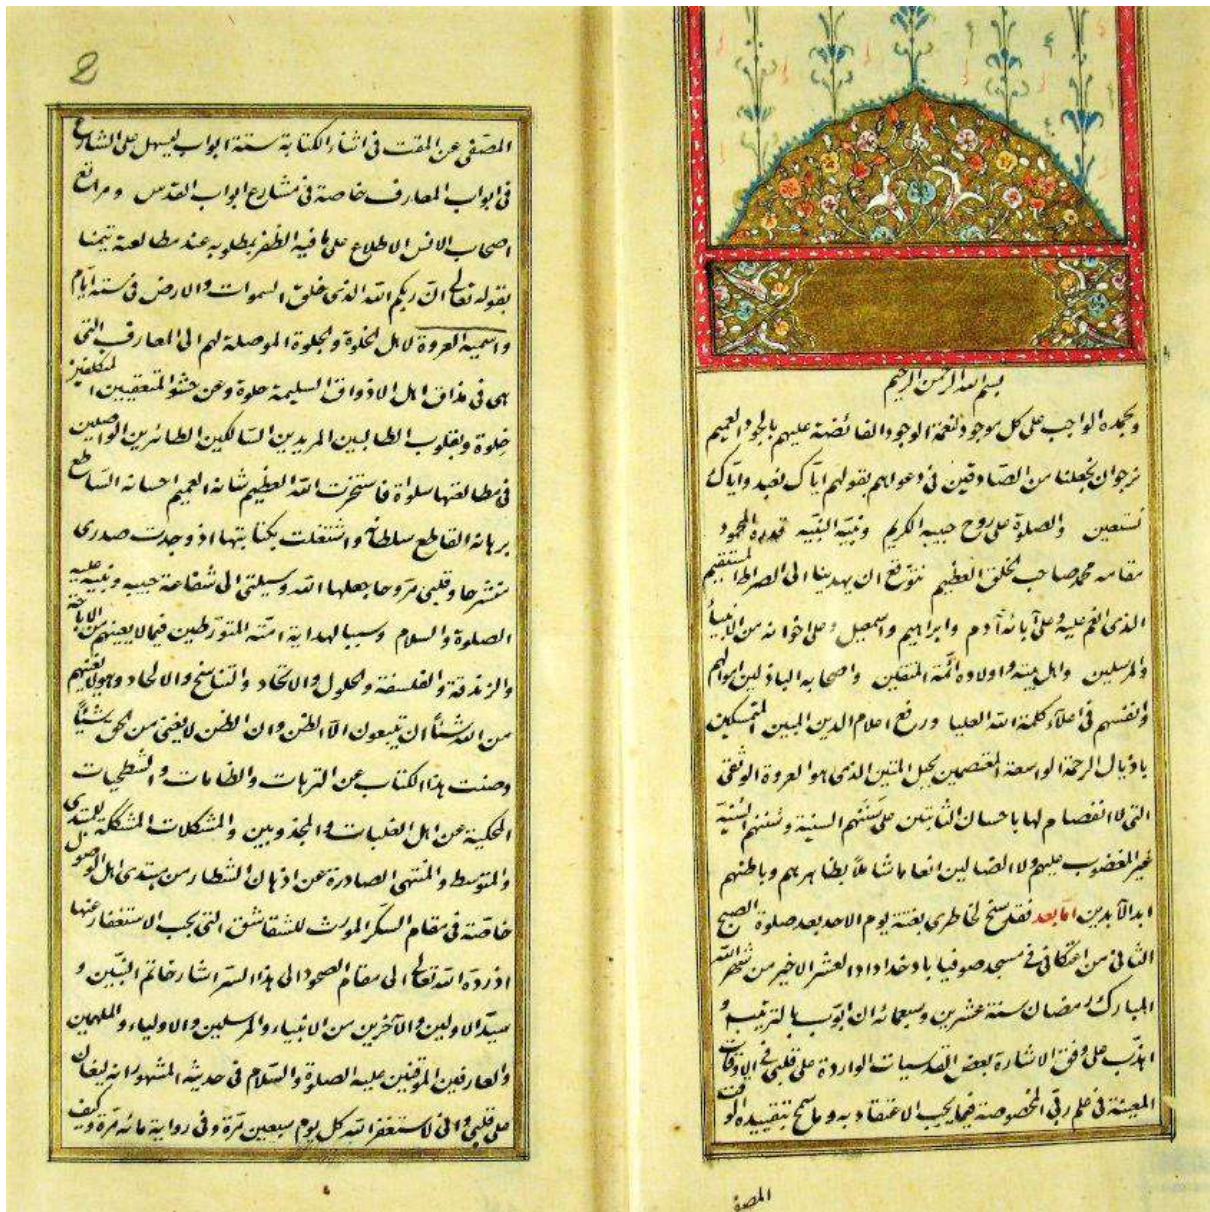 بسم الله الرحمن الرحيم
وبحمده الواجب على كل موجود لنعمة الوجود الفائضة عليهم بالجود العميم
نرجو ان يجعلنا من الصادقين فى دعواهم بقولهم اياك نعبد واياك
نستعين والصلوة على روح حبيبه الكريم ونبيه النبيه قدره المحمود
مقامه محمد صاحب الخلق العظيم نتوقع ان يهدينا الى الصراط المستقيم
الذى انعم عليه وعلى آبائه آدم وابراهيم واسمعيل وعلى اخوانه من الانبياء
والمرسلين واهل بيته واولاده ائمة المتقين واصحابه الباذلين اموالهم
وانفسهم فى اعلاء كلمة الله العليا ورفع اعلام الدين المبين المتمسكين
باذيال الرحمة الواسعة المعتصمين بحبل المتين الذى هو العروة الوثقى
التى لا انفصام لها باحسان الثابتين على سننهم السنية وسننهم السنية
غير المغضوب عليهم ولا الضالين انعاما شاملا بظاهرهم وباطنهم
ابد الآبدين اما بعد فقد سنح لخاطرى بغتة يوم الاحد بعد صلوة الصبح
الثانى من اعتكافى فى مسجد صوفياباد خداداد العشر الاخير من شهر الله
المبارك رمضان سنة عشرين وسبعمائه ان ابوب بالترتيب و
اهذب على وفق الاشارة بعض القدسيات الواردة على قلبى فى الاوقات
المعينة فى علم ربى المخصوصة فيما يجب الاعتقاد به وما سمح بتقييده الوقت
المصفى
2
المصفى عن المقت فى اثناء الكتابة ستة ابواب ليسهل على الشارع
فى ابواب المعارف خاصة فى مشارع ابواب القدس ومراتع
اصحاب الانس الاطلاع على ما فيه الظفر بمطلوبه عند مطالعته تيمنا
بقوله تعالى ان ربكم الله الذى خلق السموات والارض فى ستة ايام
واسميه العروة لاهل الخلوة والجلوة الموصلة لهم الى المعارف التى
هى فى مذاق اهل الاذواق السليمة حلوة وعن حشو المتعقبين المتكلفين
خلوة ولقلوب الطالبين المريدين السالكين الطائرين الواصلين
فى مطالعتها سلوة فاستخرت الله العظيم شانه العميم احسانه الساطع
برهانه القاطع سلطانه واشتغلت بكتابتها اذ وجدت صدرى
منشرحا وقلبى مروحا جعلها الله وسيلتى الى شفاعة حبيبه ونبيه عليه
الصلوة والسلام وسببا لهداية امته المتورطين فيما لا يعنيهم من الاباحة
والزندقة والفلسفة والحلول والاتحاد والتناسخ والالحاد وهو لا يغنيهم
من الله شيئا ان يتبعون الا الظن وان الظن لا يغنى من الحق شيئا
وصنت هذا الكتاب عن الترهات والطامات والشطحيات
المحكية عن اهل الغلبات والمجذوبين والمشكلات المشككة للمبتدى
والمتوسط والمنتهى الصادرة عن اذهان الشطار من مبتدى اهل الوصول
خاصة فى مقام السكر المورث للشقاشق التى يجب الاستغفار عنها
اذ رده الله تعالى الى مقام الصحو والى هذا السر اشار خاتم النبيين و
سيد الاولين والآخرين من الانبياء والمرسلين والاولياء والملهمين
والعارفين الموقنين عليه الصلوة والسلام فى حديثه المشهور انه ليغان
على قلبى وانى لاستغفر الله كل يوم سبعين مرة وفى رواية مائه مرة وكيف